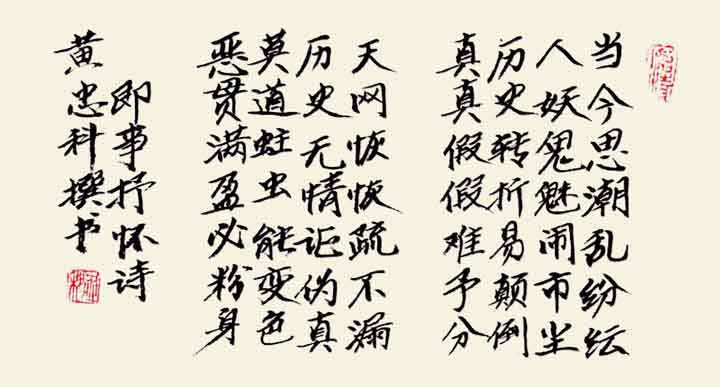 当今思潮乱纷纭
人妖鬼魅闹市尘
历史转折易颠倒
真真假假难予分
天网恢恢疏不漏
历史无情证伪真
莫道蛀虫能变色
恶贯满盈必粉身
即事抒怀诗
黄忠科撰书